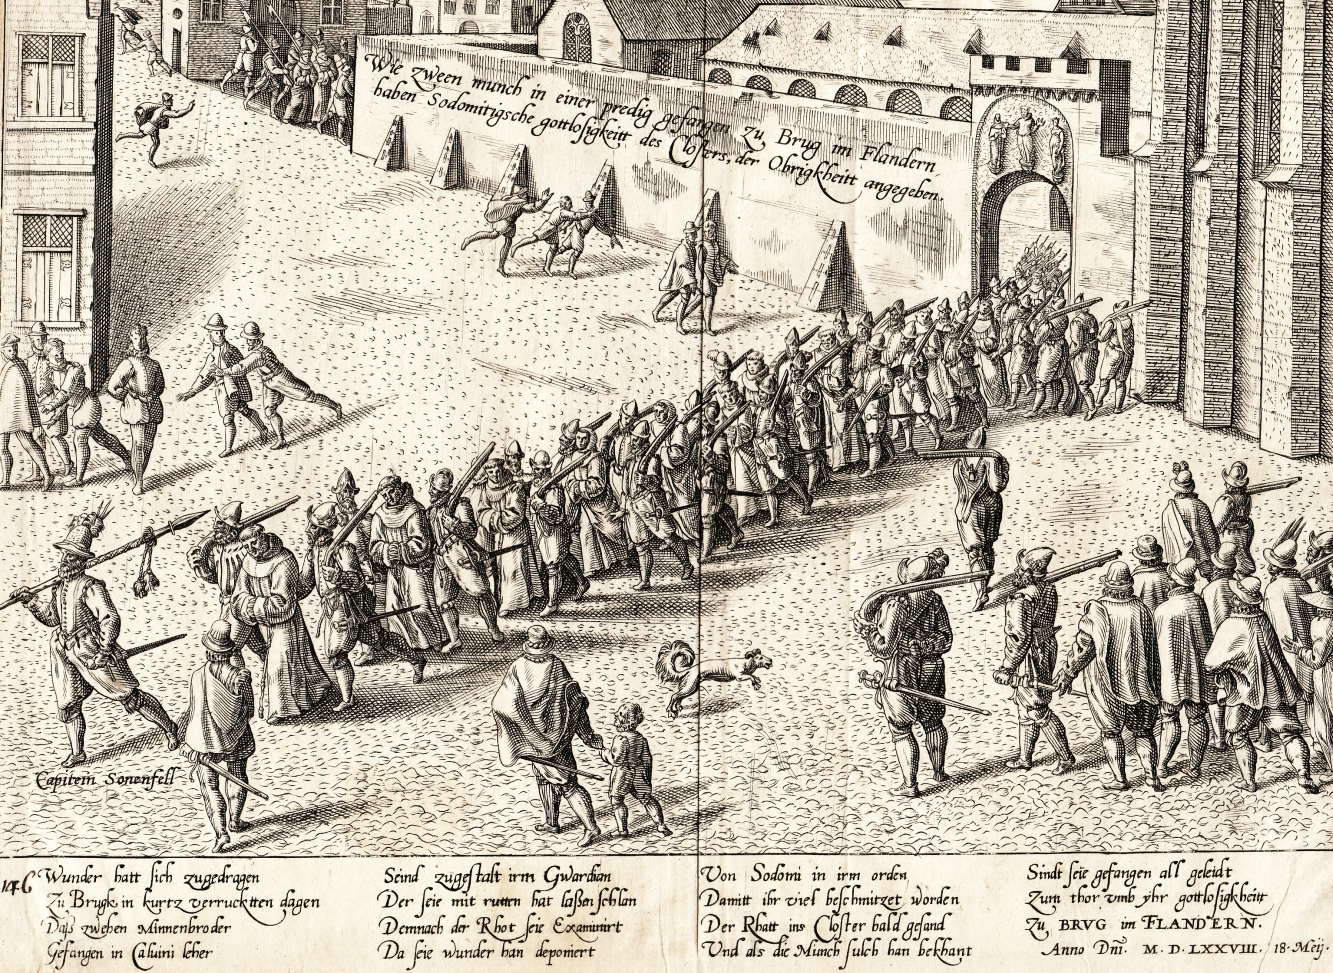 Wie zween munch in einer predig gefangen zu Brug im Flandern,
haben Sodomitigsche gottlosigkeitt des Closters, der Obrigkheitt angegeben.
Capitein Sonenfell
146
Wunder hatt sich zugedragen
Zu Brugk in kurtz verruckten dagen
Daß zwehen Minnenbroder
Gefangen in Caluini leher
Seind zugestalt irm Gwardian
Der seie mit rutten hat laßen schlan
Demnach der Rhot seie Examinirt
Da seie wunder han deponiert
Von Sodomi in irm orden
Damitt ihr viel beschmitzet worden
Der Rhatt ins Closter bald gesand
Und als die Münch sulch han bekhant
Sindt seie gefangen all geleidt
Zum thor vmb yhr gottlosigkheitt
Zu BRVG im FLANDERN.
Anno Dñi. M. D. LXXVIII. 18. Meij.